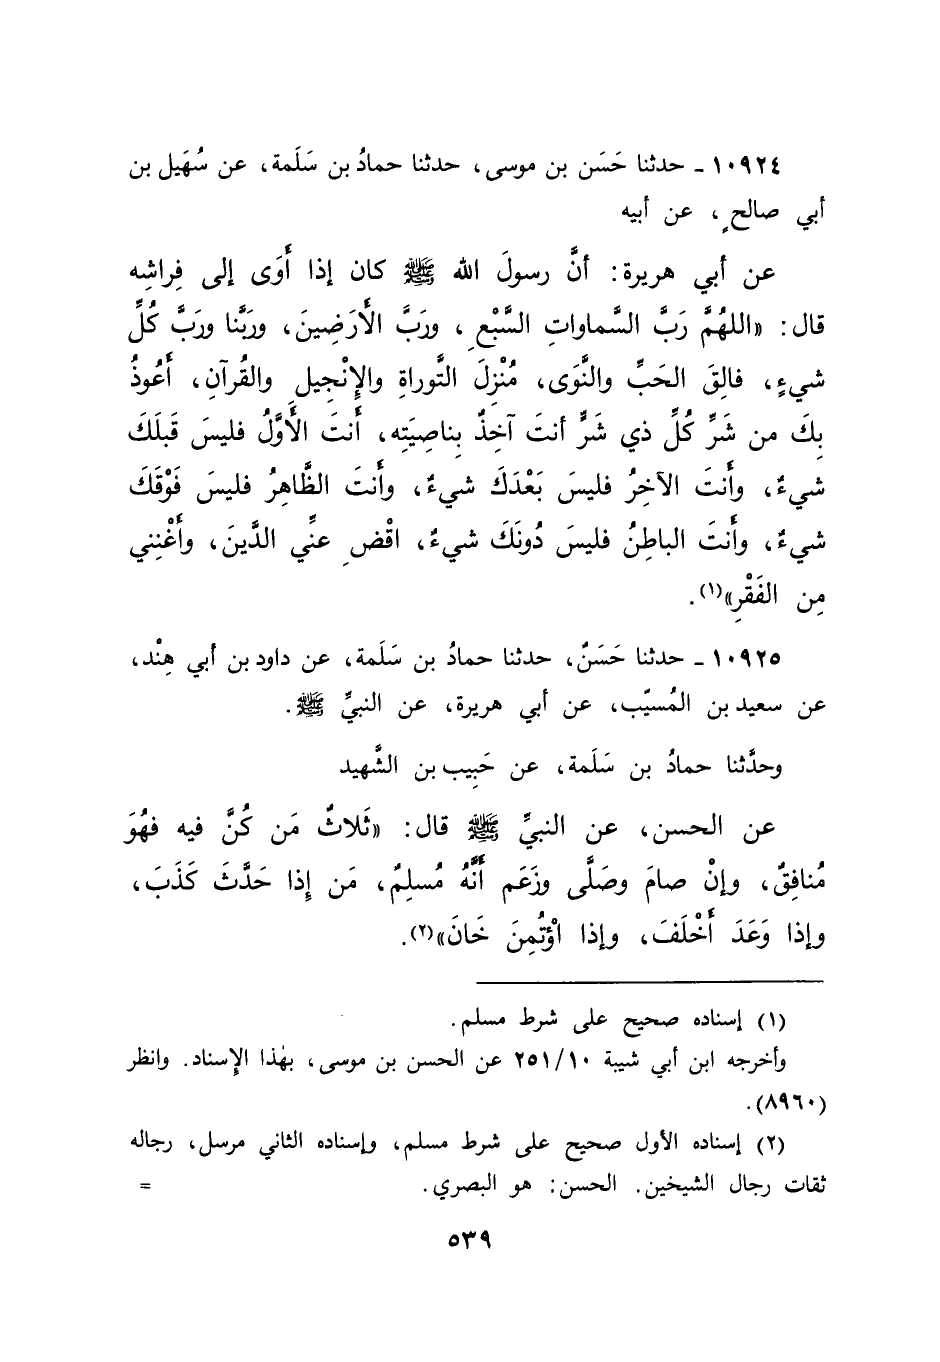 ١٠٩٢٤ ـ حدثنا حَسَن بن موسى، حدثنا حمادُ بن سَلَمة، عن سُهَيل بن
أبي صالحٍ، عن أبيه
عن أبي هريرة: أنَّ رسولَ الله ﷺ كان إذا أَوَى إلى فِراشِه
قال: «اللهُمَّ رَبَّ السَّماواتِ السَّبْعِ، ورَبَّ الأَرَضِينَ، ورَبَّنا ورَبَّ كُلِّ
شيءٍ، فالِقَ الحَبِّ والنَّوَى، مُنْزِلَ التَّوراةِ والإِنْجيلِ والقُرآنِ، أَعُوذُ
بِكَ من شَرِّ كُلِّ ذي شَرٍّ أنتَ آخِذٌ بِناصِيَتِه، أَنتَ الأَوَّلُ فليسَ قَبلَكَ
شيءٌ، وأَنتَ الآخِرُ فليسَ بَعْدَكَ شيءٌ، وأَنتَ الظَّاهِرُ فليسَ فَوْقَكَ
شيءٌ، وأَنتَ الباطِنُ فليسَ دُونَكَ شيءٌ، اقْضِ عنِّي الدَّينَ، وأَغْنِني
مِن الفَقْرِ»(١).
١٠٩٢٥ ـ حدثنا حَسَنٌ، حدثنا حمادُ بن سَلَمة، عن داود بن أبي هِنْد،
عن سعيد بن المُسيّب، عن أبي هريرة، عن النبيِّ ﷺ.
وحدَّثنا حمادُ بن سَلَمة، عن حَبِيب بن الشَّهيد
عن الحسن، عن النبيِّ ﷺ قال: «ثَلاثٌ مَن كُنَّ فيه فهُوَ
مُنافِقٌ، وإنْ صامَ وصَلَّى وزَعَم أَنَّهُ مُسلِمٌ، مَن إِذا حَدَّثَ كَذَبَ،
وإذا وَعَدَ أَخْلَفَ، وإذا اؤْتُمِنَ خَانَ»(٢).
(١) إسناده صحيح على شرط مسلم.
وأخرجه ابن أبي شيبة ٢٥١/١٠ عن الحسن بن موسى، بهٰذا الإِسناد. وانظر
(٨٩٦٠).
(٢) إسناده الأول صحيح على شرط مسلم، وإسناده الثاني مرسل، رجاله
ثقات رجال الشيخين. الحسن: هو البصري. =
٥٣٩